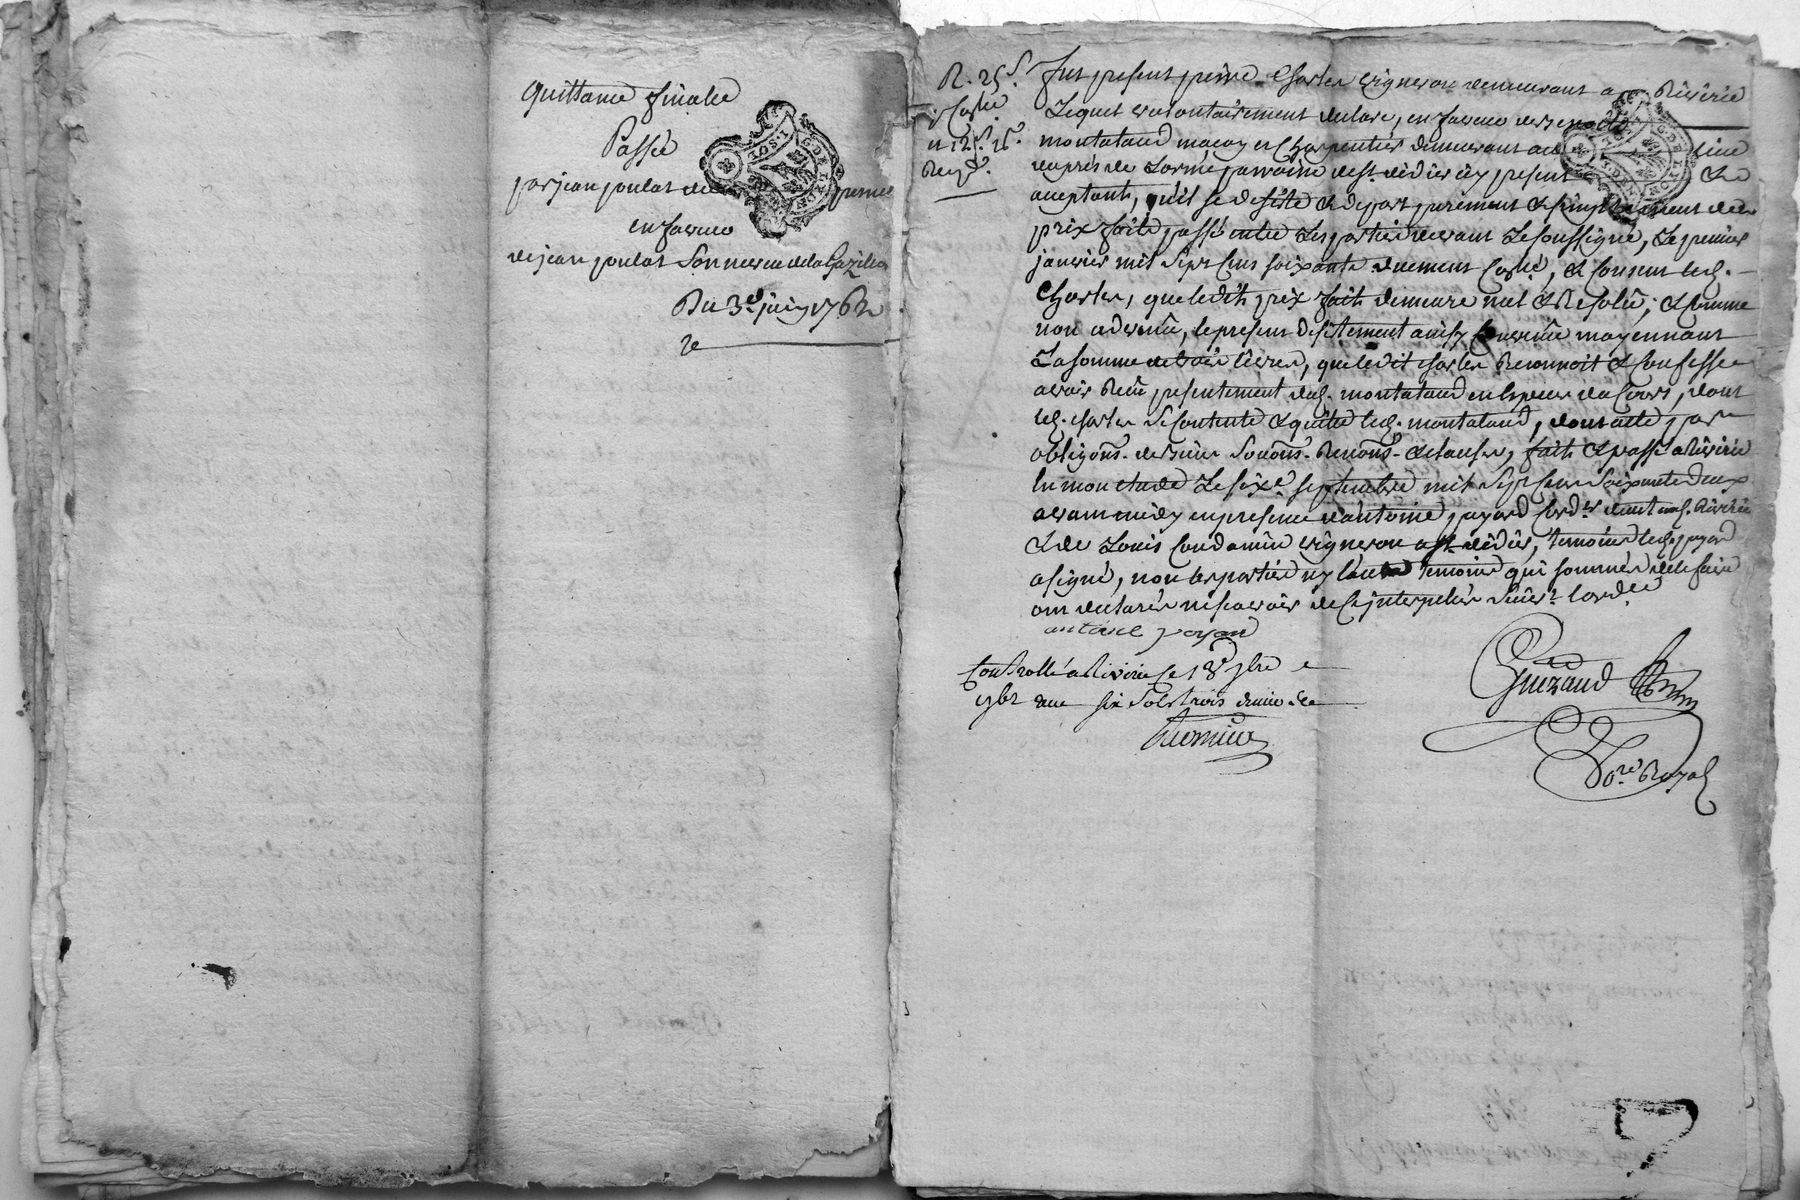 quittance finale
Passée
par jean poulat de
en faveur
de jean poulat son neveu de la
Du 3e juin 1762
R. 25 s
Fut present pierre Charles vigneron demeurant a Riverie
Lequel volontairement declare, en faveur de benoit
montaland maçon et Charpentier demeurant au lieu
du prés de Lorme parroisse de st. didier icy present &
aceptant, qu'il se desiste & depart purement & simplement du
prix fait passé entre Les parties devant Le soussigné, Le premier
janvier mil sept cens soixante duement Conlé, & Consent led.
Charles, que ledit prix fait demeure nul & Resolu, & comme
non advenu, le present desistement ainsy Convenu moyennant
La somme de trois livres, que ledit Charles Reconnoit & Confesse
avoir Reçu presentement dud. montaland en especes du Cours, dont
led. Charles se Contente & quitte led. montaland, dont acte par
obligons. de biens soumons. Renons. & clauses, fait & passé a Riverie
en mon etude Le sixe. septembre mil sept cens soixante deux
avant midy en presence d'antoine payard Cordr. dud. Riverie
& de Louis Condamin vigneron a st. didier, temoins led. payard
a signé, non les parties ny l'autre temoins qui sommés de le faire
ont declarés ne sçavoir de ce interpelés suivt. l'ordce
antoine payard
Controllé a Riverie le 18e 7bre
1762 reçu six sols trois deniers
Guezaud
Nore. Royal